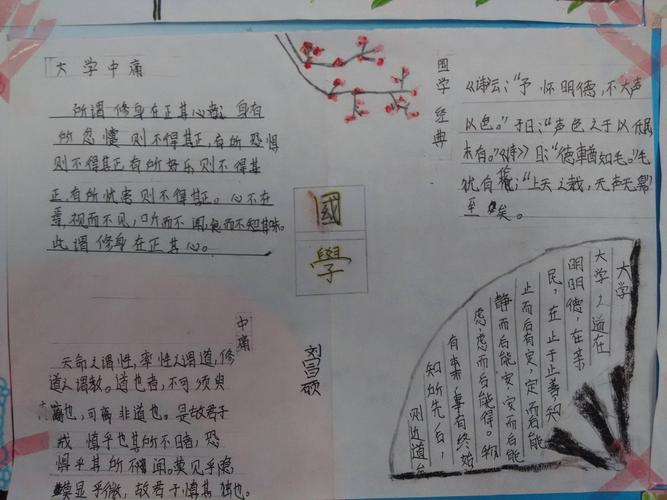 大学中痛
所谓修身在正其心者：身有
所忿懥则不得其正，有所恐惧
则不得其正有所好乐则不得其
正，有所忧患则不得其正。心不在
焉，视而不见，听而不闻，食而不知其味。
此谓修身在正其心。
国学经典
《诗》云：“予怀明德，不大声
以色。”子曰：“声色之于以化民
末有。”《诗》曰：“德輶如毛。”毛
犹有伦；“上天之载，无声无臭”
至矣。
國
學
中痛
天命之谓性，率性之谓道，修
道之谓教。道也者，不可须臾
离也，可离非道也。是故君子
戒慎乎其所不睹，恐
惧乎其所不闻。莫见乎隐
莫显乎微，故君子慎其独也。
刘昌硕
大学
大学之道在
明明德，在亲
民，在止于至善，知
止而后有定，定而后能
静而后能安，安而后能
虑，虑而后能得。物
有本末，事有终始
知所先后，
则近道矣